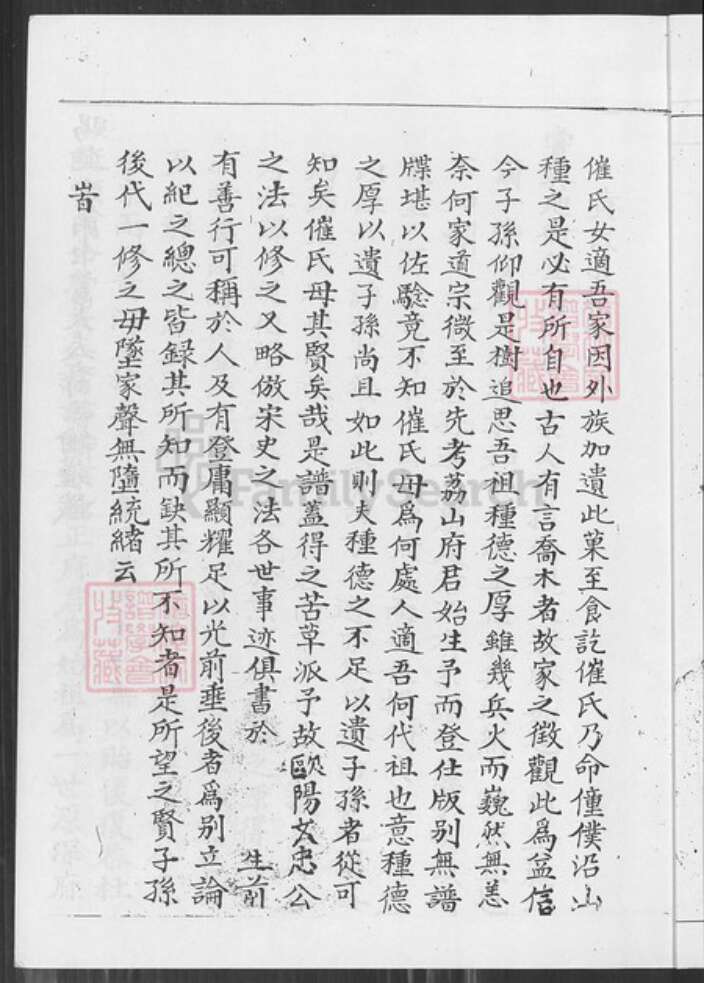 催氏女適吾家因外族加遺此菓至食訖催氏乃命僮僕沿山
種之是必有所自也古人有言喬木者故家之徵觀此爲益信
今子孫仰觀是樹追思吾祖種德之厚雖幾兵火而巍然無恙
奈何家道宗微至於先考荔山府君始生予而登仕版别無譜
牒堪以佐騐竟不知催氏母爲何處人適吾何代祖也意種德
之厚以遺子孫尚且如此則夫種德之不足以遺子孫者從可
知矣催氏母其賢矣哉是譜蓋得之苦草派予故歐陽文忠公
之法以修之又略倣宋史之法各世事迹俱書於 生前
有善行可稱於人及有登庸顯耀足以光前垂後者爲别立論
以紀之總之皆録其所知而缺其所不知者是所望之賢子孫
後代一修之毋墜家聲無墮統緒云
旹
FamilySearch